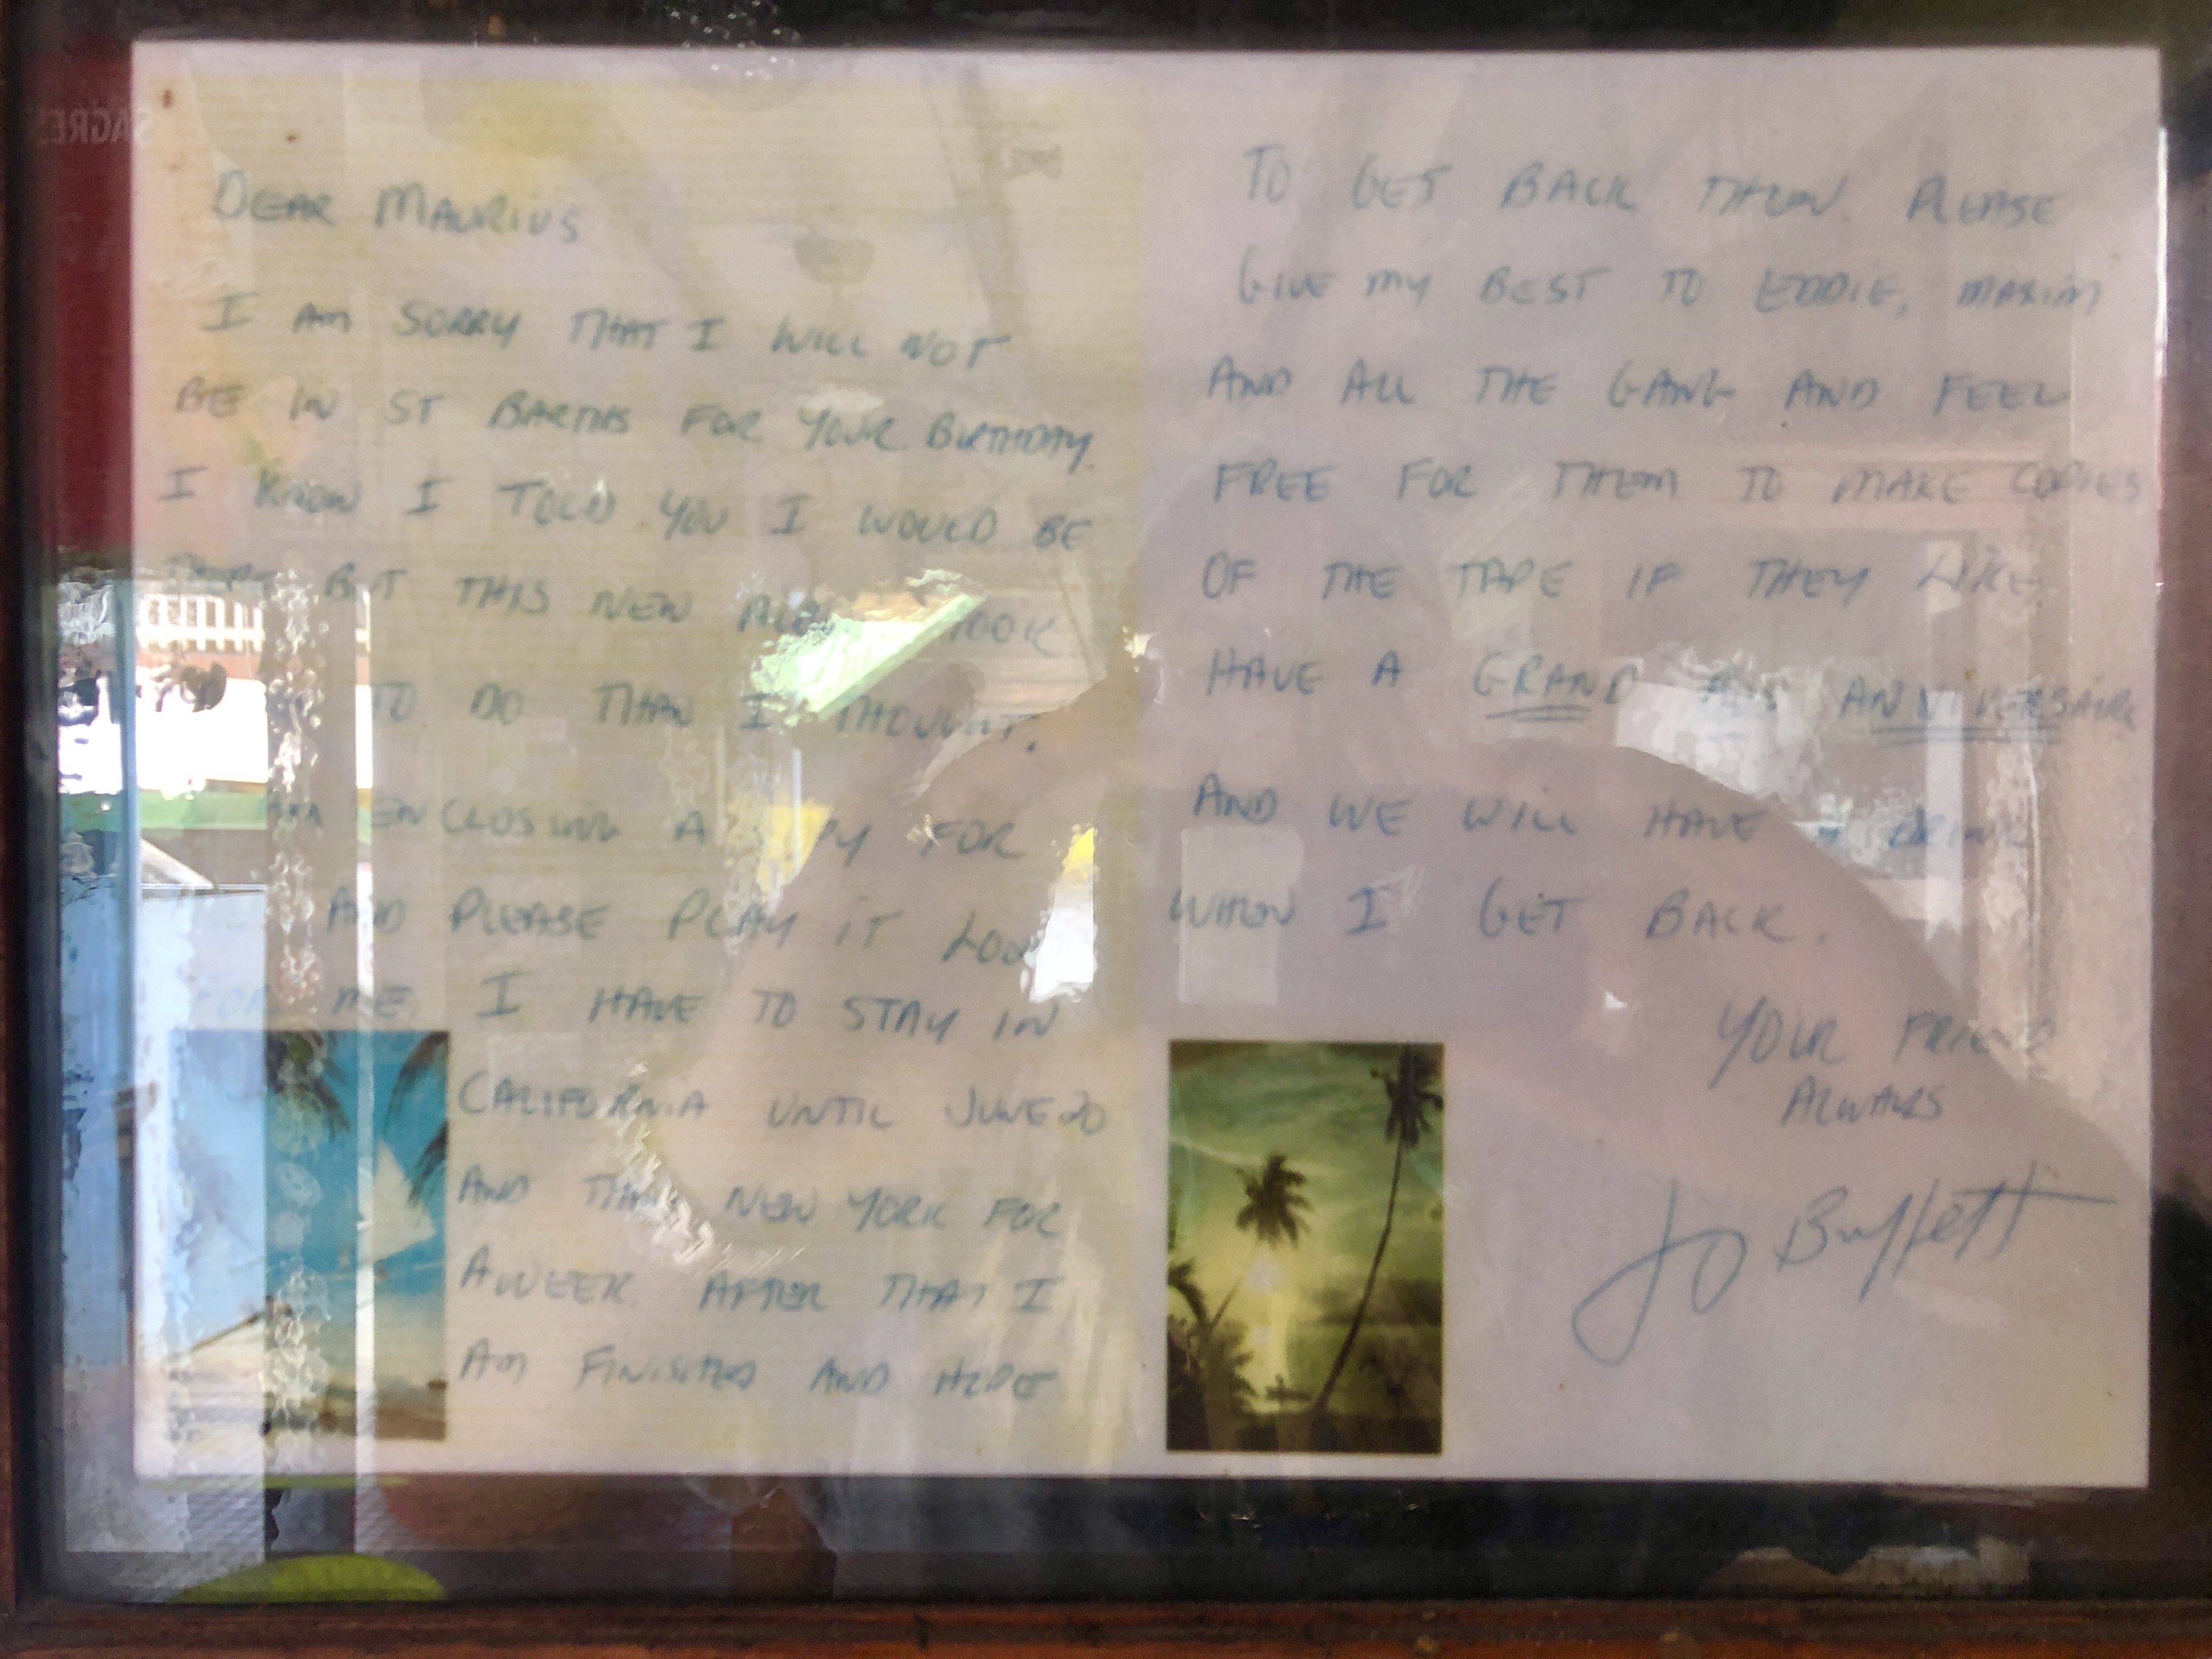 DEAR MAURIUS
I AM SORRY THAT I WILL NOT
BE IN ST BARTHS FOR YOUR BIRTHDAY.
I KNOW I TOLD YOU I WOULD BE
THERE BUT THIS NEW TOOK
TO DO THAN I THOUGHT.
AM ENCLOSING A FOR
AND PLEASE PLAY IT
FOR ME. I HAVE TO STAY IN
CALIFORNIA UNTIL JUNE 20
AND THEN NEW YORK FOR
A WEEK. AFTER THAT I
AM FINISHED AND HOPE
TO GET BACK THEN. PLEASE
GIVE MY BEST TO EDDIE, MAXIM
AND ALL THE GANG AND FEEL
FREE FOR THEM TO MAKE COPIES
OF THE TAPE IF THEY LIKE.
HAVE A GRAND
AND WE WILL HAVE A DRINK
WHEN I GET BACK.
YOUR FRIEND
ALWAYS
JD Buffett